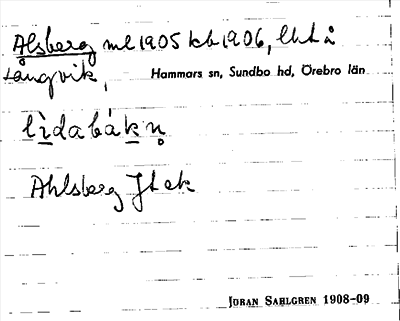 Alsberg ml 1905 kb 1906, lht å
Långvik, Hammars sn, Sundbo hd, Örebro län
lìdabákn̥
Ahlsberg Jt ek
JÖRAN SAHLGREN 1908-09